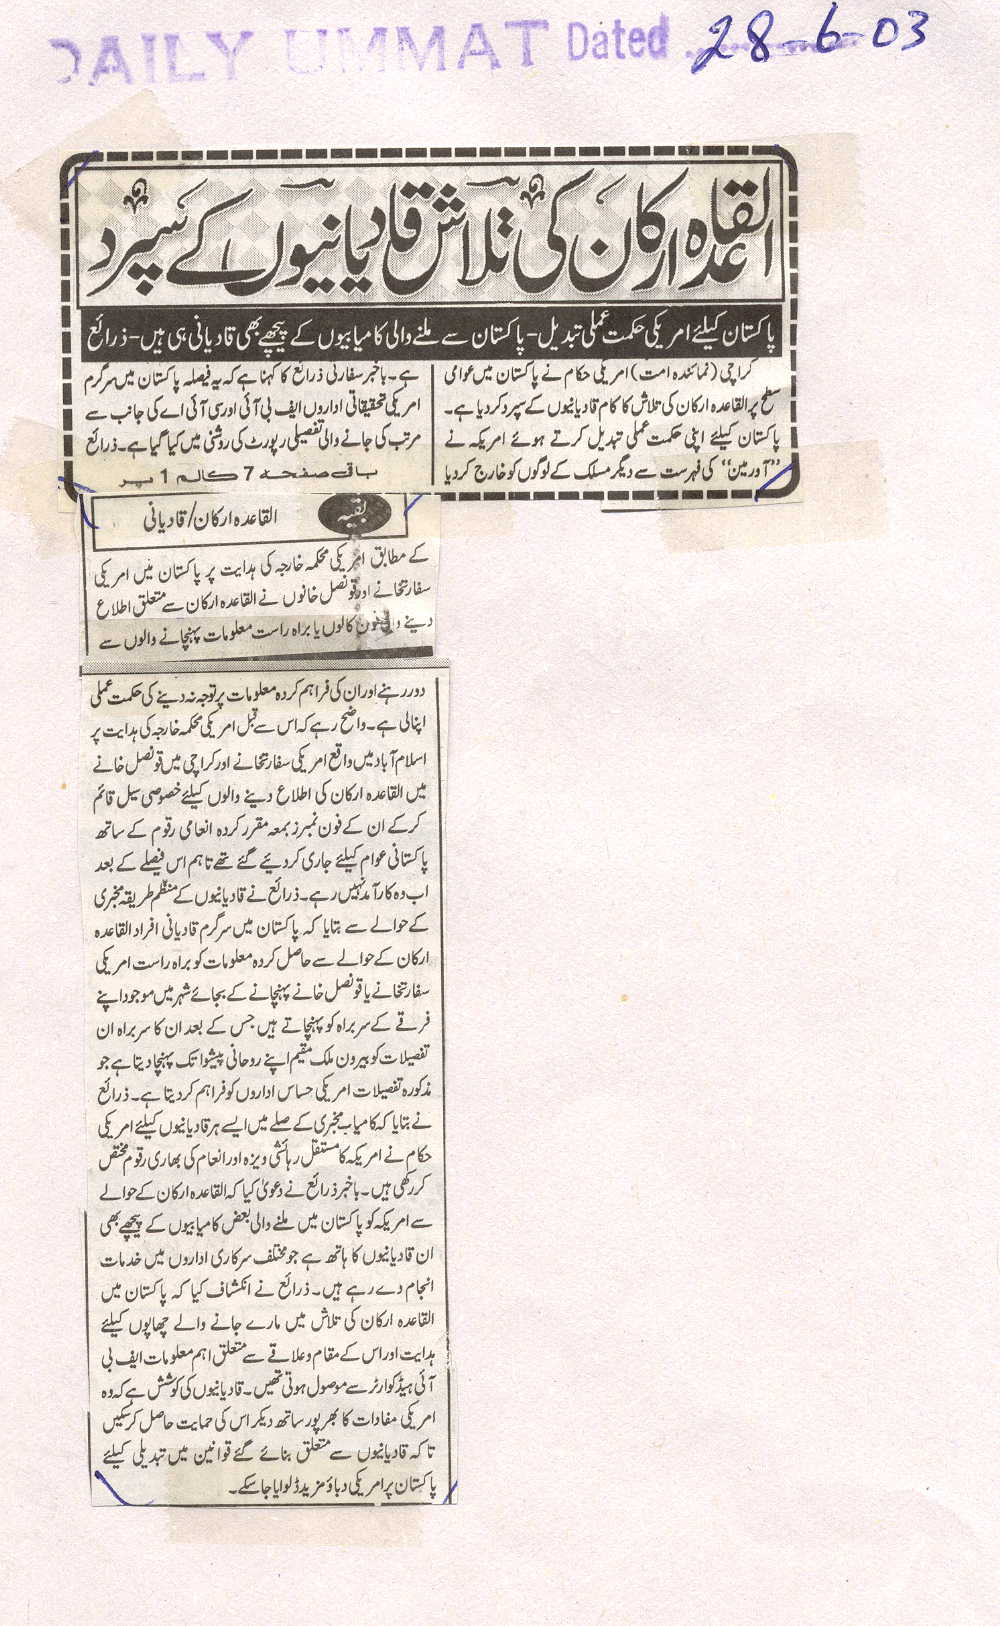 DAILY UMMAT Dated 28-6-03
القاعدہ ارکان کی تلاش قادیانیوں کے سپرد
پاکستان کیلئے امریکی حکمت عملی تبدیل - پاکستان سے ملنے والی کامیابیوں کے پیچھے بھی قادیانی ہی ہیں - ذرائع
کراچی (نمائندہ امت) امریکی حکام نے پاکستان میں عوامی
سطح پر القاعدہ ارکان کی تلاش کا کام قادیانیوں کے سپرد کردیا ہے۔
پاکستان کیلئے اپنی حکمت عملی تبدیل کرتے ہوئے امریکہ نے
”آور مین“ کی فہرست سے دیگر مسلک کے لوگوں کو خارج کردیا
ہے۔ باخبر سفارتی ذرائع کا کہنا ہے کہ یہ فیصلہ پاکستان میں سرگرم
امریکی تحقیقاتی اداروں ایف بی آئی اور سی آئی اے کی جانب سے
مرتب کی جانے والی تفصیلی رپورٹ کی روشنی میں کیا گیا ہے۔ ذرائع
باقی صفحہ 7 کالم 1 پر
بقیہ القاعدہ ارکان/قادیانی
کے مطابق امریکی محکمہ خارجہ کی ہدایت پر پاکستان میں امریکی
سفارتخانے اور قونصل خانوں نے القاعدہ ارکان سے متعلق اطلاع
دینے والی فون کالوں یا براہ راست معلومات پہنچانے والوں سے
دور رہنے اور ان کی فراہم کردہ معلومات پر توجہ نہ دینے کی حکمت عملی
اپنالی ہے۔ واضح رہے کہ اس سے قبل امریکی محکمہ خارجہ کی ہدایت پر
اسلام آباد میں واقع امریکی سفارتخانے اور کراچی میں قونصل خانے
میں القاعدہ ارکان کی اطلاع دینے والوں کیلئے خصوصی سیل قائم
کرکے ان کے فون نمبرز بمعہ مقرر کردہ انعامی رقوم کے ساتھ
پاکستانی عوام کیلئے جاری کردیئے گئے تھے تاہم اس فیصلے کے بعد
اب وہ کارآمد نہیں رہے۔ ذرائع نے قادیانیوں کے منظم طریقہ مخبری
کے حوالے سے بتایا کہ پاکستان میں سرگرم قادیانی افراد القاعدہ
ارکان کے حوالے سے حاصل کردہ معلومات کو براہ راست امریکی
سفارتخانے یا قونصل خانے پہنچانے کے بجائے شہر میں موجود اپنے
فرقے کے سربراہ کو پہنچاتے ہیں جس کے بعد ان کا سربراہ ان
تفصیلات کو بیرون ملک مقیم اپنے روحانی پیشوا تک پہنچا دیتا ہے جو
مذکورہ تفصیلات امریکی حساس اداروں کو فراہم کردیتا ہے۔ ذرائع
نے بتایا کہ کامیاب مخبری کے صلے میں ایسے ہر قادیانیوں کیلئے امریکی
حکام نے امریکہ کا مستقل رہائشی ویزہ اور انعام کی بھاری رقوم مختص
کررکھی ہیں۔ باخبر ذرائع نے دعویٰ کیا کہ القاعدہ ارکان کے حوالے
سے امریکہ کو پاکستان میں ملنے والی بعض کامیابیوں کے پیچھے بھی
ان قادیانیوں کا ہاتھ ہے جو مختلف سرکاری اداروں میں خدمات
انجام دے رہے ہیں۔ ذرائع نے انکشاف کیا کہ پاکستان میں
القاعدہ ارکان کی تلاش میں مارے جانے والے چھاپوں کیلئے
ہدایت اور اس کے مقام و علاقے سے متعلق اہم معلومات ایف بی
آئی ہیڈ کوارٹر سے موصول ہوتی تھیں۔ قادیانیوں کی کوشش ہے کہ وہ
امریکی مفادات کا بھرپور ساتھ دیکر اس کی حمایت حاصل کرسکیں
تاکہ قادیانیوں سے متعلق بنائے گئے قوانین میں تبدیلی کیلئے
پاکستان پر امریکی دباؤ مزید ڈلوایا جاسکے۔